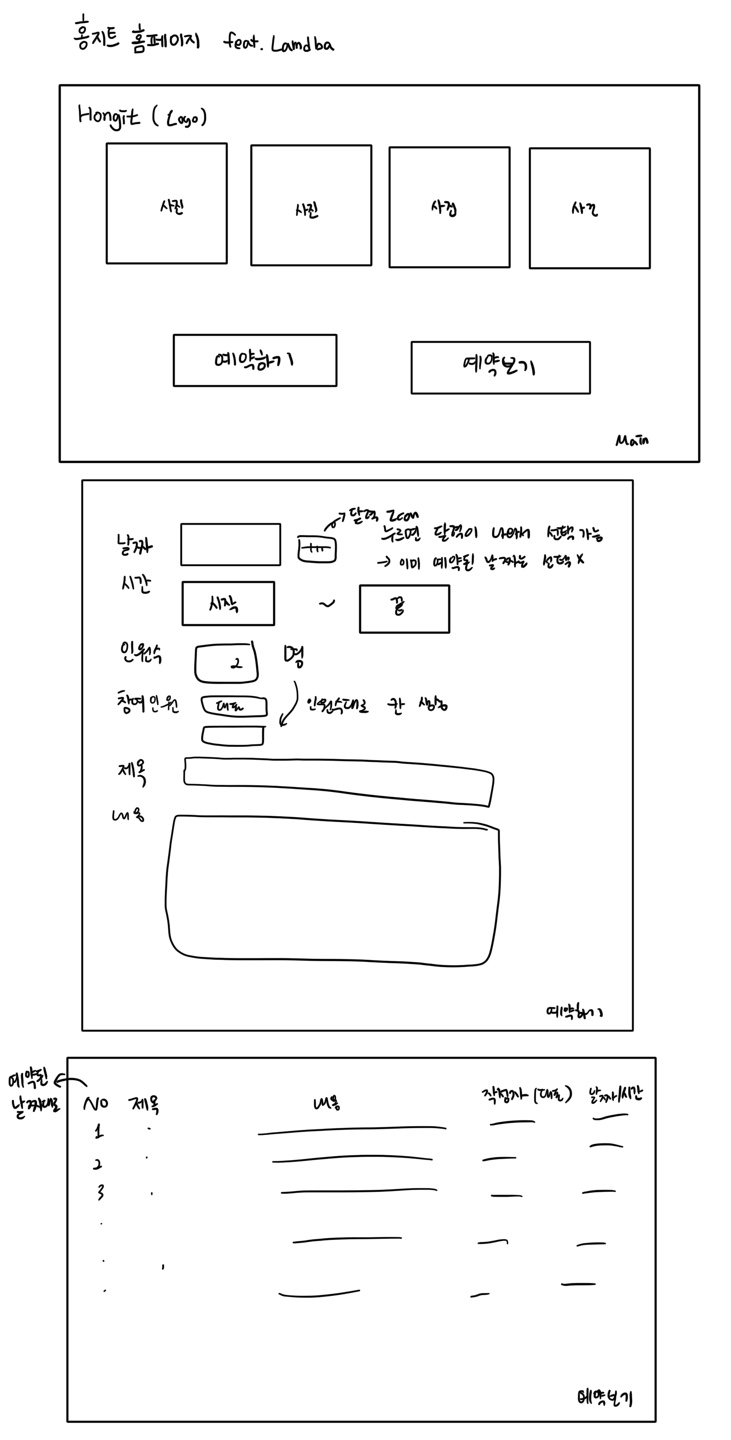 홍지트 홈페이지 feat. Lamdba
Hongit (Logo)
사진 사진 사진 사진
예약하기 예약보기
Main
날짜 → 달력 Icon
누르면 달력이 나와서 선택 가능
→ 이미 예약된 날짜는 선택 X
시간 시작 ~ 끝
인원수 2 명
참여인원 대표 인원수대로 칸 생성
제목
내용
예약하기
예약된
날짜대로
No 제목 내용 작성자 (대표) 날짜/시간
1
2
3
예약보기